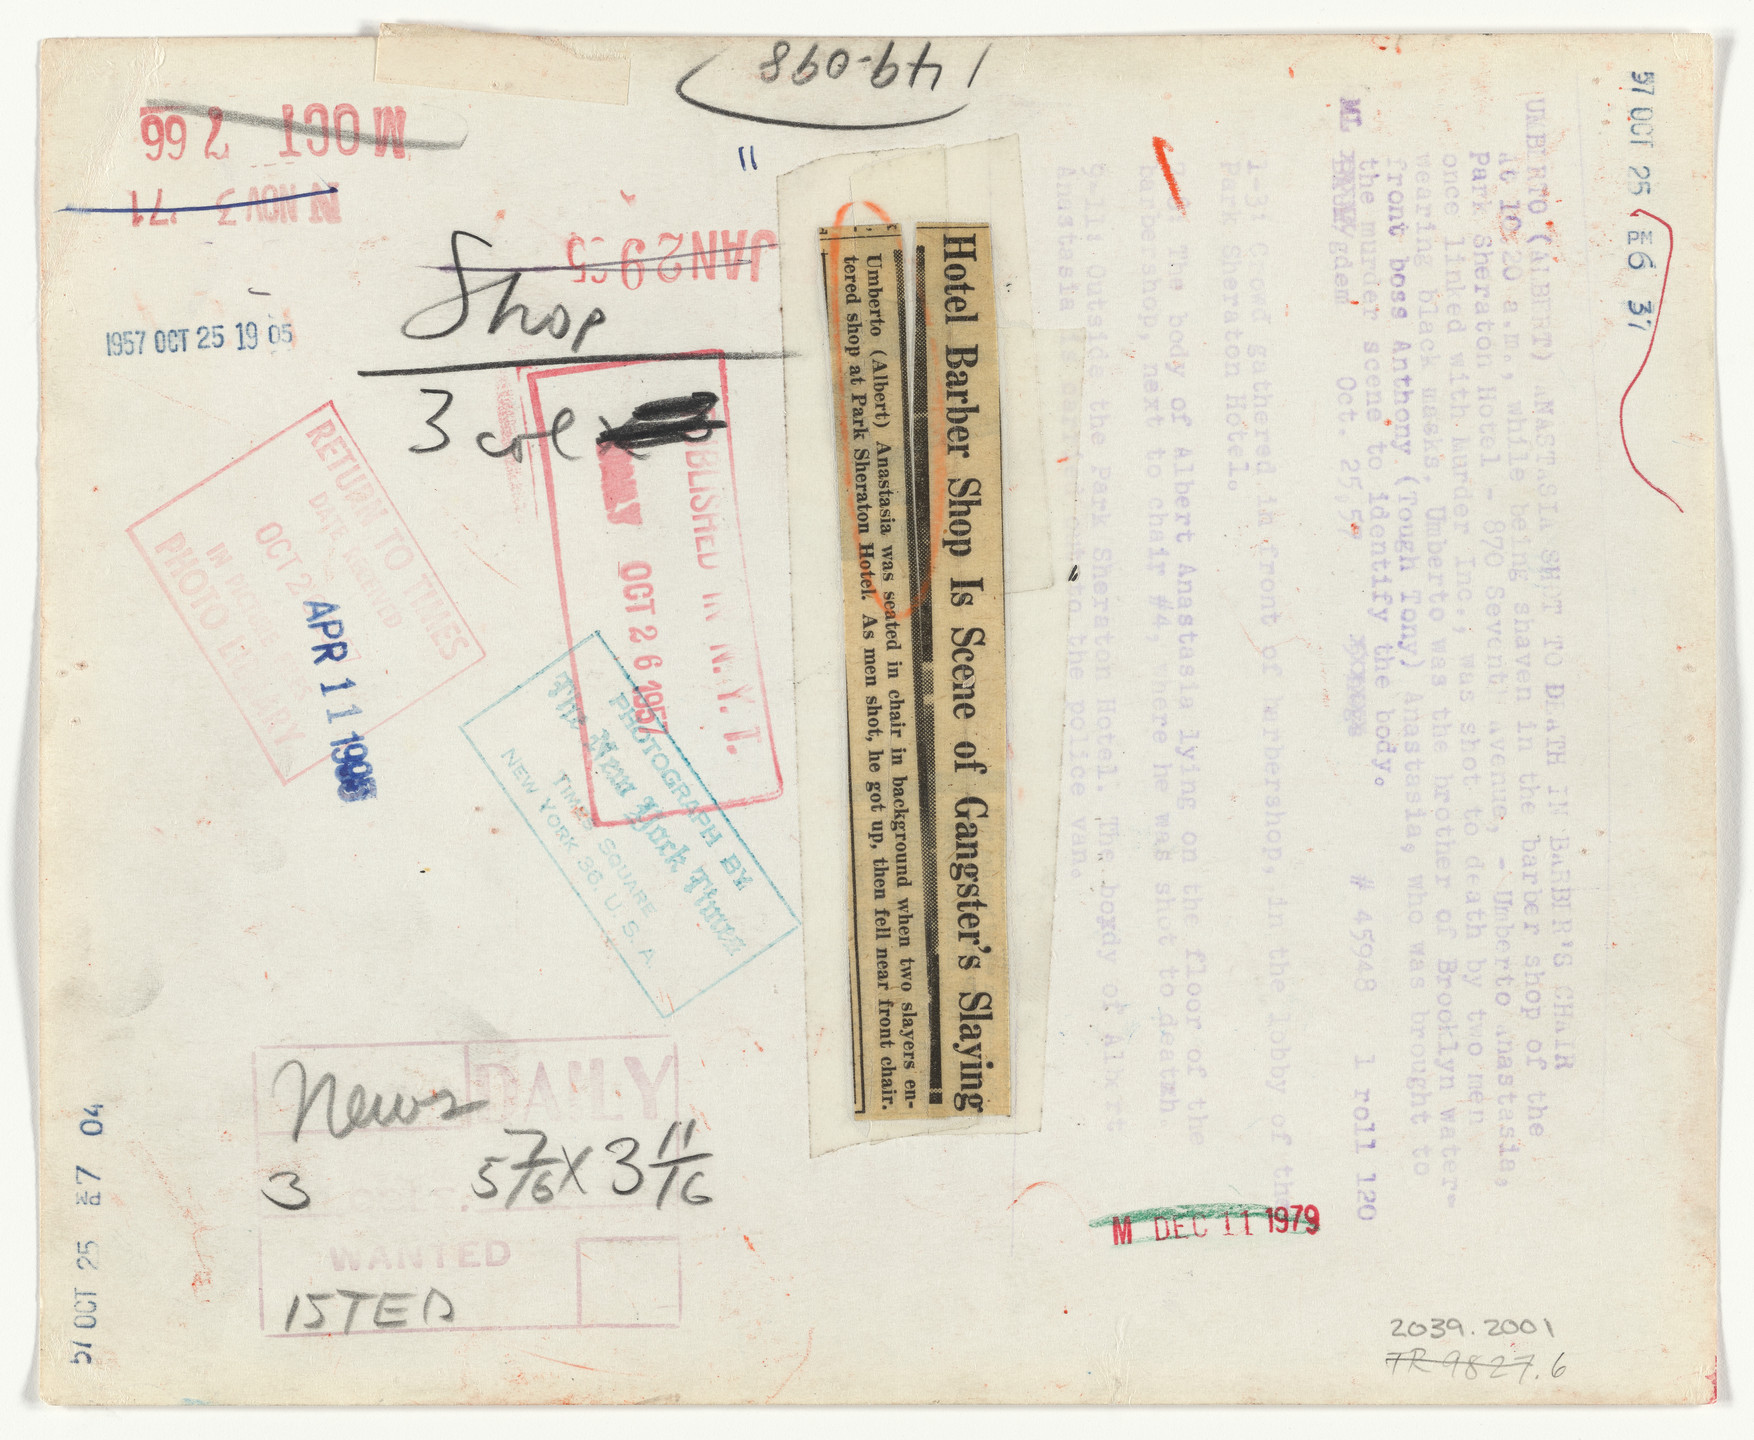 149-098
M OCT 7 66
N NOV 3 '71
JAN 29 65
Shop
3 col x
1957 OCT 25 19 05
11
RETURN TO TIMES
DATE
OCT 2
IN
PHOTO LIBRARY
APR 11 1985
PUBLISHED IN N. Y. T.
OCT 26 1957
PHOTOGRAPH BY
The New York Times
TIMES SQUARE
NEW YORK 36, U. S. A.
Hotel Barber Shop Is Scene of Gangster's Slaying
Umberto (Albert) Anastasia was seated in chair in background when two slayers en-
tered shop at Park Sheraton Hotel. As men shot, he got up, then fell near front chair.
57 OCT 25 PM 6 37
UMBERTO (ALBERT) ANASTASIA SHOT TO DEATH IN BARBER'S CHAIR
At 10.20 a.m., while being shaven in the barber shop of the
Park Sheraton Hotel - 870 Seventh Avenue, - Umberto Anastasia,
once linked with Murder Inc., was shot to death by two men
wearing black masks. Umberto was the brother of Brooklyn water-
front boss Anthony (Tough Tony) Anastasia, who was brought to
the murder scene to identify the body.
ML gdem Oct. 25,57 # 45948 1 roll 120
1-3: Crowd gathered in front of barbershop, in the lobby of the
Park Sheraton Hotel.
The body of Albert Anastasia lying on the floor of the
barbershop, next to chair #4, where he was shot to deatxh.
9-11: Outside the Park Sheraton Hotel. The boxdy of Albert
Anastasia is carried out to the police van.
57 OCT 25 PM 7 04
DAILY
News
3
5 7/16 x 3 11/16
WANTED
15TED
M DEC 11 1979
2039.2001
TR 9827.6